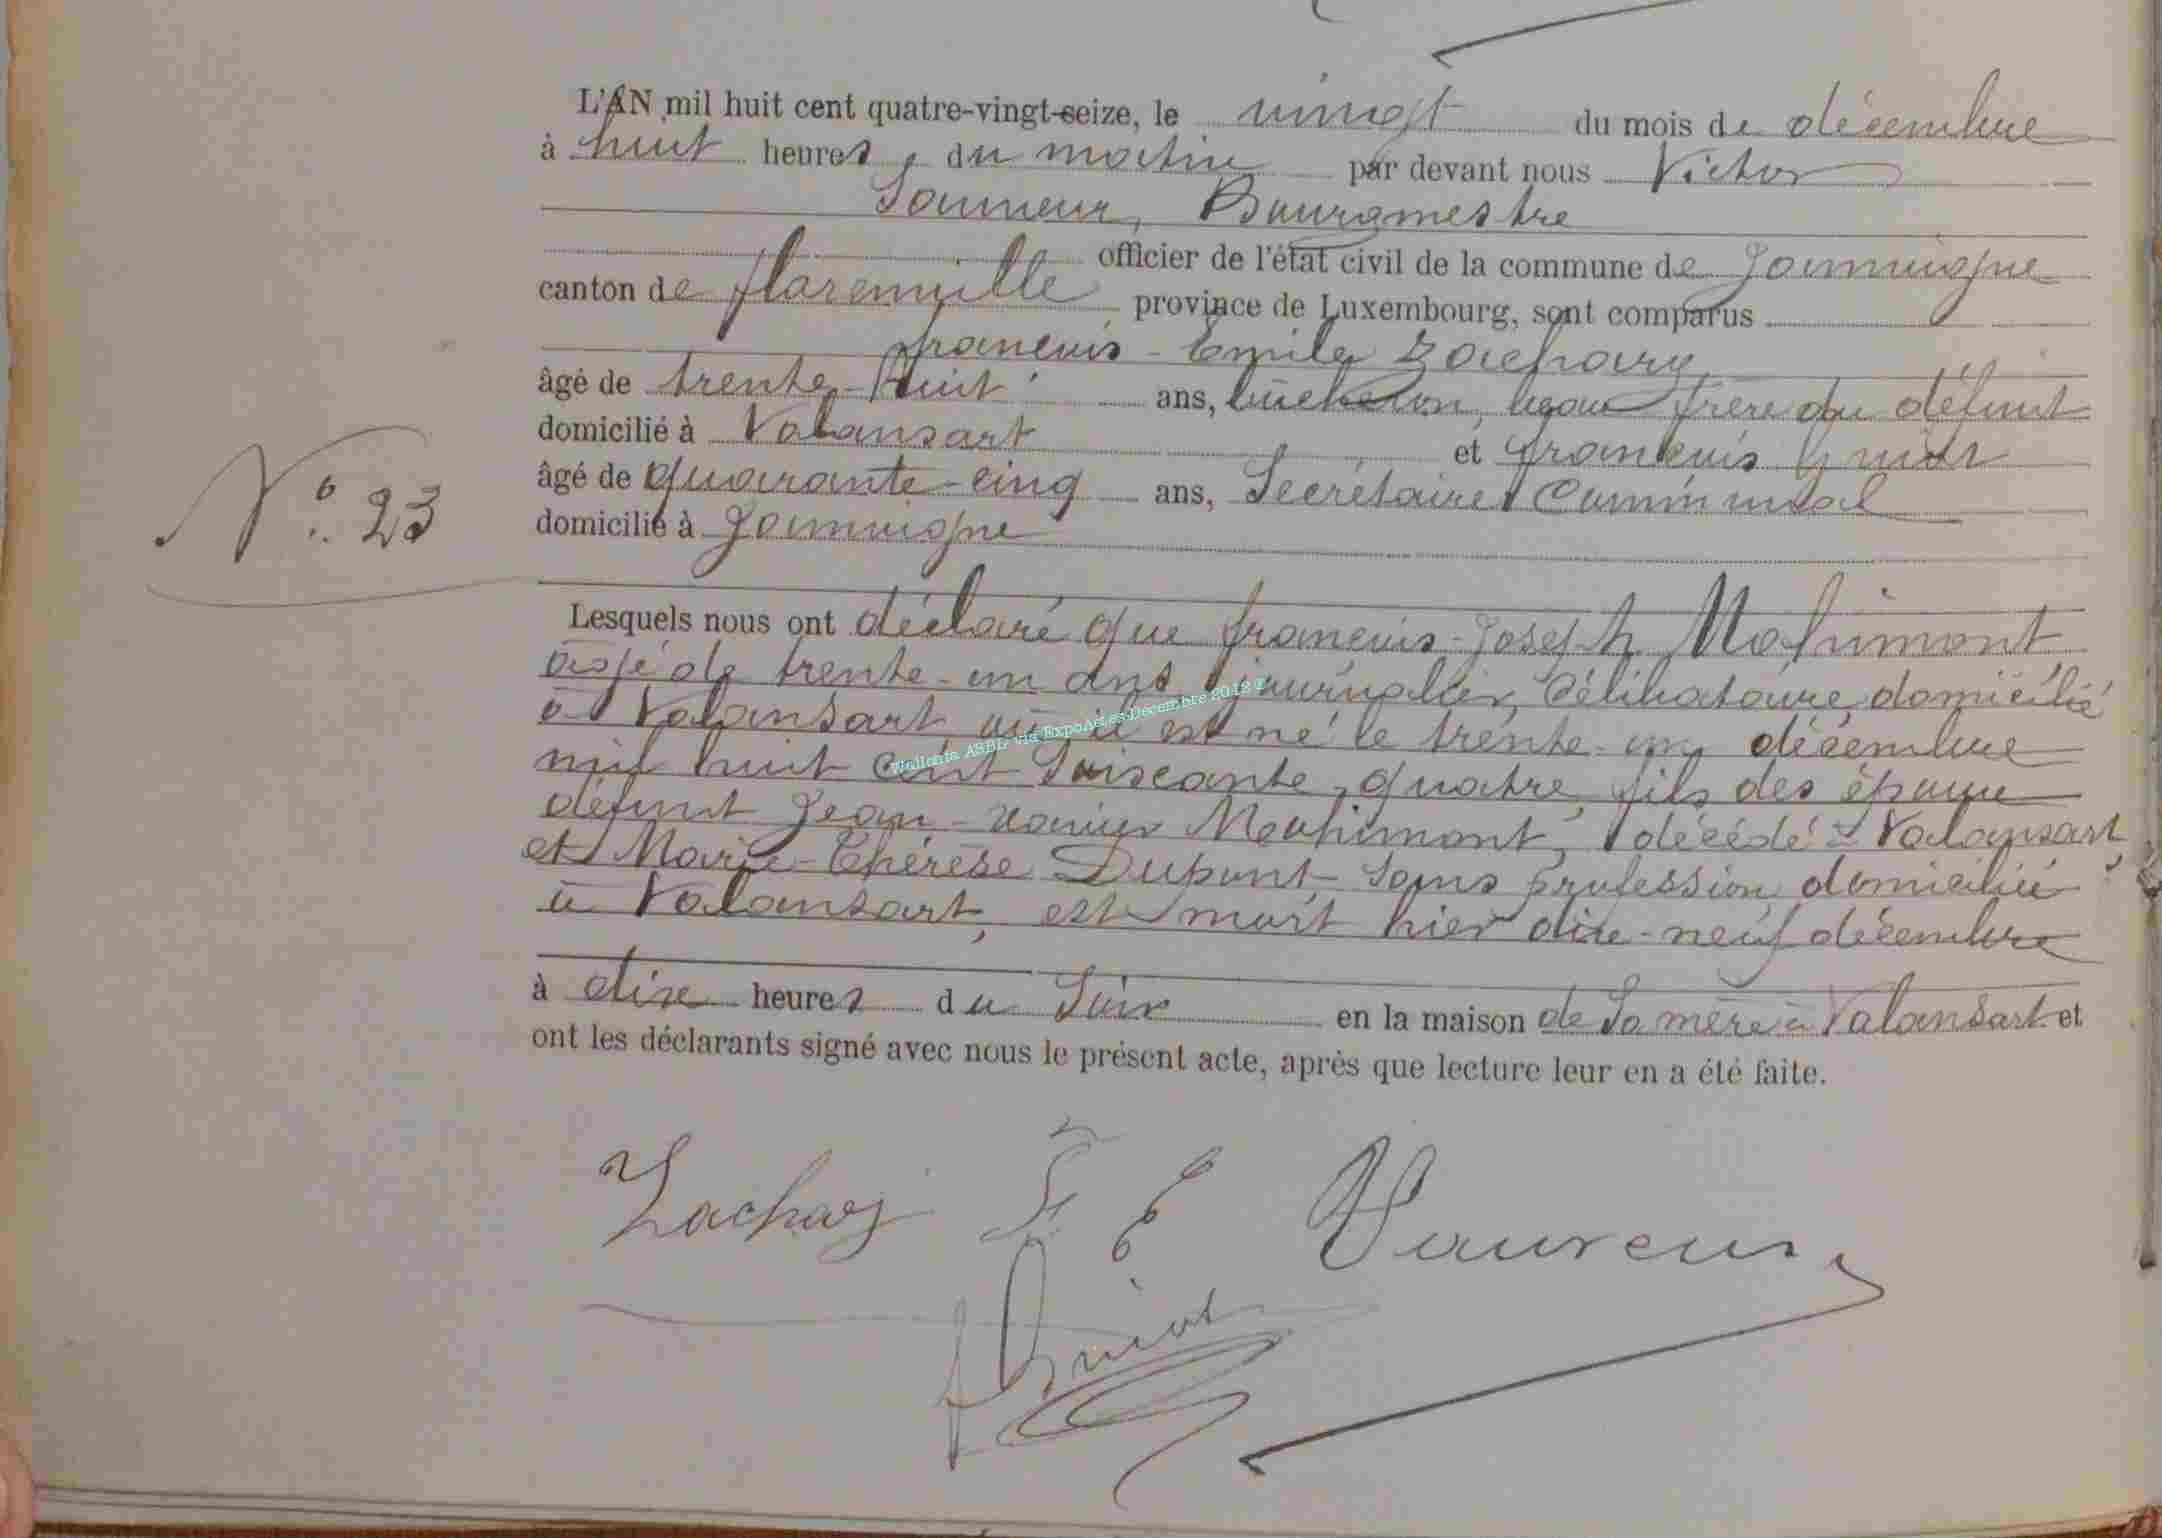 L'AN mil huit cent quatre-vingt-seize, le vingt du mois de décembre
à huit heures du matin par devant nous Victor
Bourgmestre
officier de l'état civil de la commune de Jamoigne
canton de florenville province de Luxembourg, sont comparus
françois-Emile Zachary
âgé de trente-huit ans, bûcheron, beau frère du défunt
domicilié à Valansart et françois
âgé de quarante-cinq ans, Secrétaire Communal
domicilié à Jamoigne
N° 23
Lesquels nous ont déclaré que françois-Joseph Mahimont
âgé de trente-un ans, journalier, Célibataire, domicilié
à Valansart, où il est né le trente-un décembre
mil huit cent Soixante-quatre, fils des époux
défunt Jean-Xavier Mahimont, décédé à Valansart
et Marie-Thérèse Dupont Sans profession, domiciliée
à Valansart, est mort hier dix-neuf décembre
à dix heures du Soir en la maison de Sa mère à Valansart et
ont les déclarants signé avec nous le présent acte, après que lecture leur en a été faite.
Wallonia ASBL via ExpoActes-Décembre 2012 ©
Zachary F E